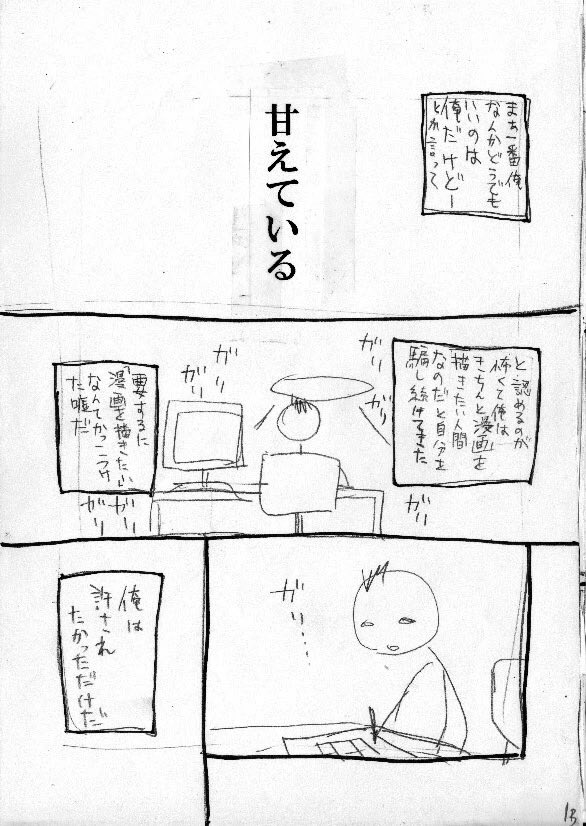 まぁ一番俺
なんかどうでも
いいのは
俺だけどー
とか言って
甘えている
と認めるのが
怖くて俺は
きちんと漫画を
描きたい人間
なのだと自分を
騙し続けてきた
ガリ
ガリ
ガリ
ガリ
ガリ
要するに
「漫画を描きたい」
なんてかっこつけ
た嘘だ
ガリ
ガリ
ガリ…
俺は
許され
たかっただけだ
13